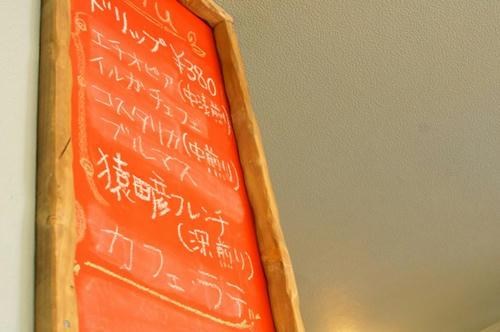 ドリップ ¥380
エチオピア(中浅煎)
イルガチェフェ
コスタリカ(中煎り)
ブルマス
猿酵フレンチ
(深煎り)
カフェ・ラテ